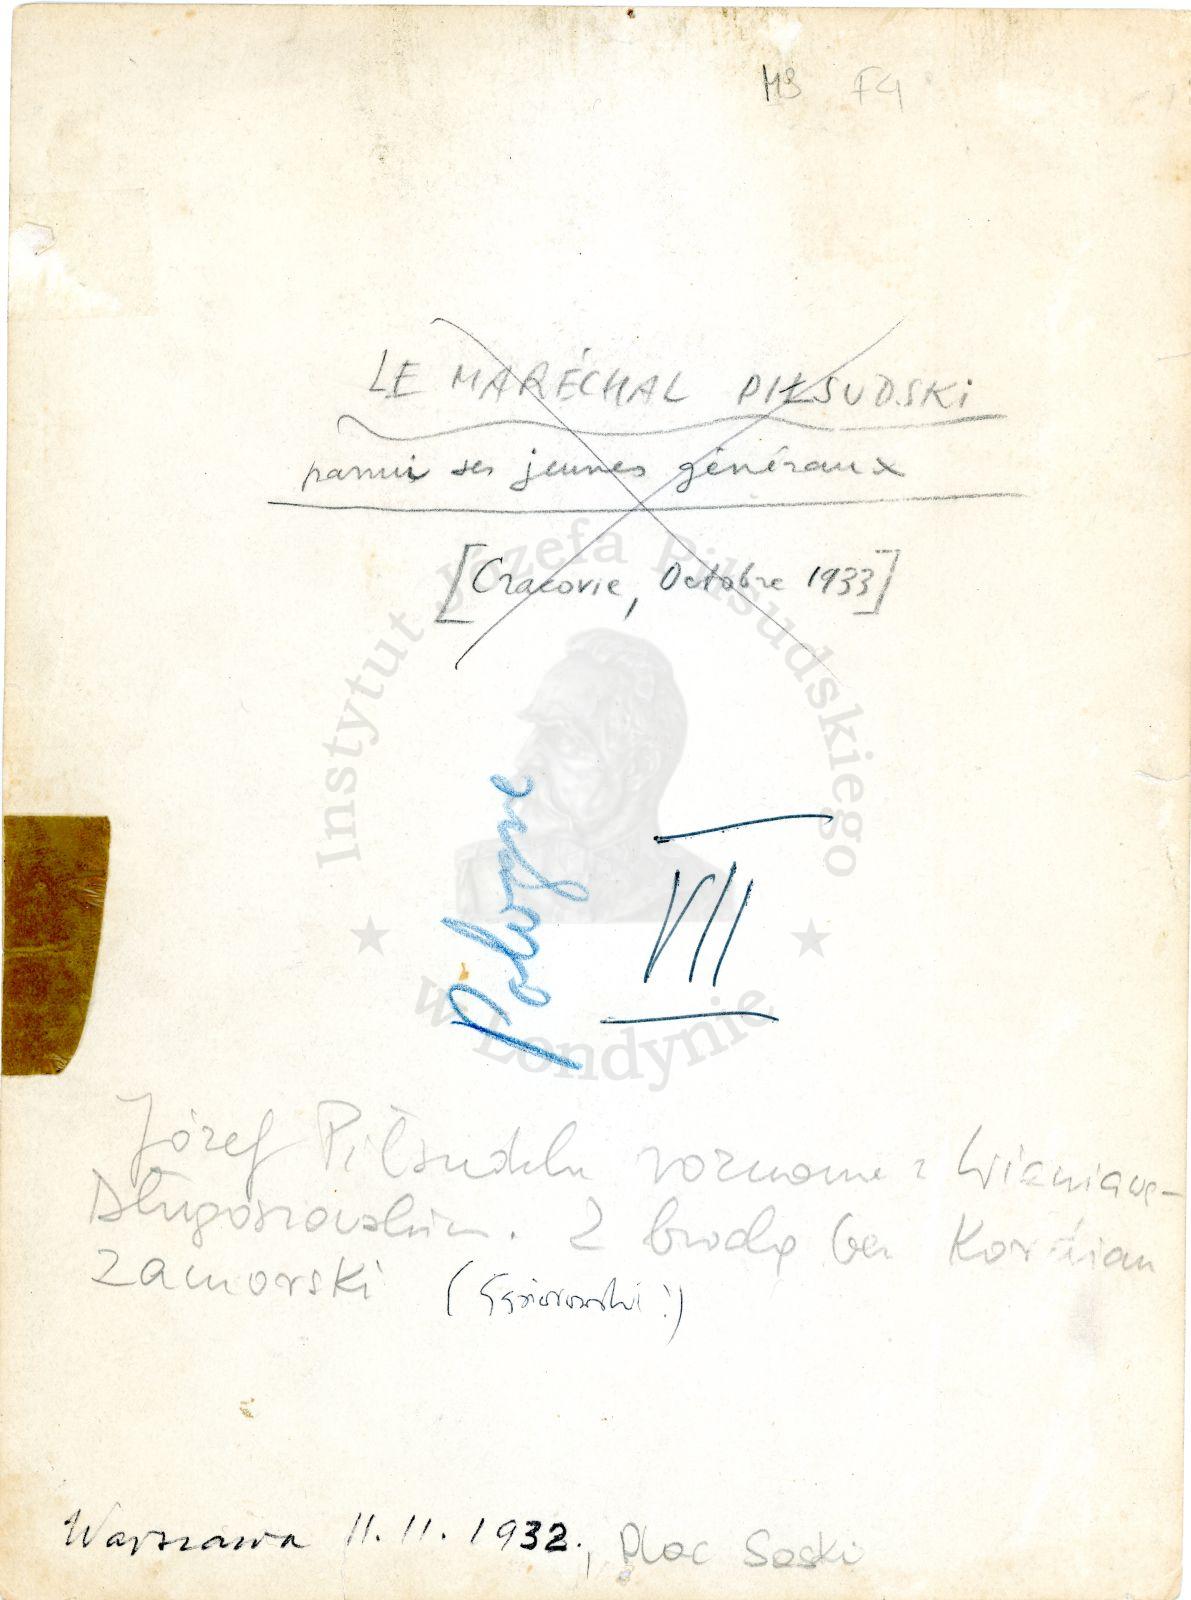 M9 F4
LE MARÉCHAL PIŁSUDSKI
parmi ses jeunes généraux
[Cracovie, Octobre 1933]
Instytut Józefa Piłsudskiego
w Londynie
Pologne
VII
Józef Piłsudski rozmawia z Wieniawą-
Długoszowskim. Z brodą Gen Kordian
Zamorski (Gąsiorowski!)
Warszawa 11.11.1932., Plac Saski